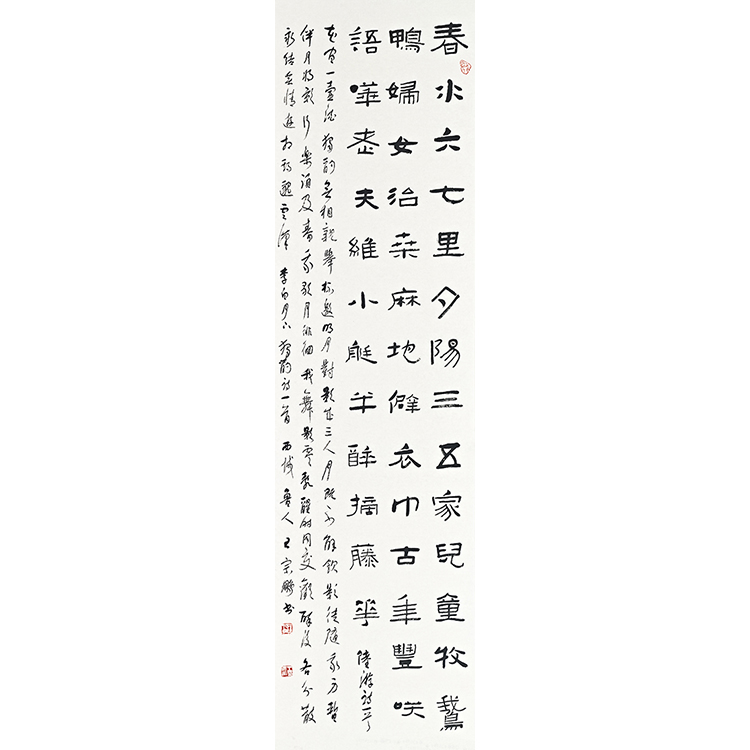 春水六七里夕陽三五家兒童牧鵝
鴨婦女治桑麻地僻衣巾古年豐咲
語嘩老夫維小艇半醉摘藤華 陸游詩一首
花間一壺酒獨酌無相親舉杯邀明月對影成三人月既不解飲影徒隨我身暫
伴月將影行樂須及春我歌月徘徊我舞影零亂醒時同交歡醉後各分散
永結無情遊相期邈雲漢 李白月下獨酌詩一首 西域魯人王宗书